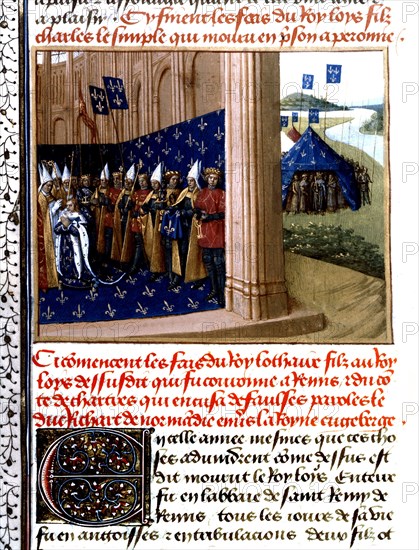 a plaisir
Cy finent les fais du Roy loys filz
charles le simple qui mourut en prison a peronne
Cy comencent les fais du Roy lothaire filz au Roy
loys dessusdit qui fu couronne a Reims / du con
te de chartres qui encusa de faulses paroles le
duc Richart de normadie envers la Royne engeberge
En celle annee mesmes que ces cho
ses advindrent come dessus est
dit mourut le Roy loys Enterre
fu en labbaie de saint Remy de
Reims tous les iours de sa vie
fu en angoisses z en tribulacions deux filz ot